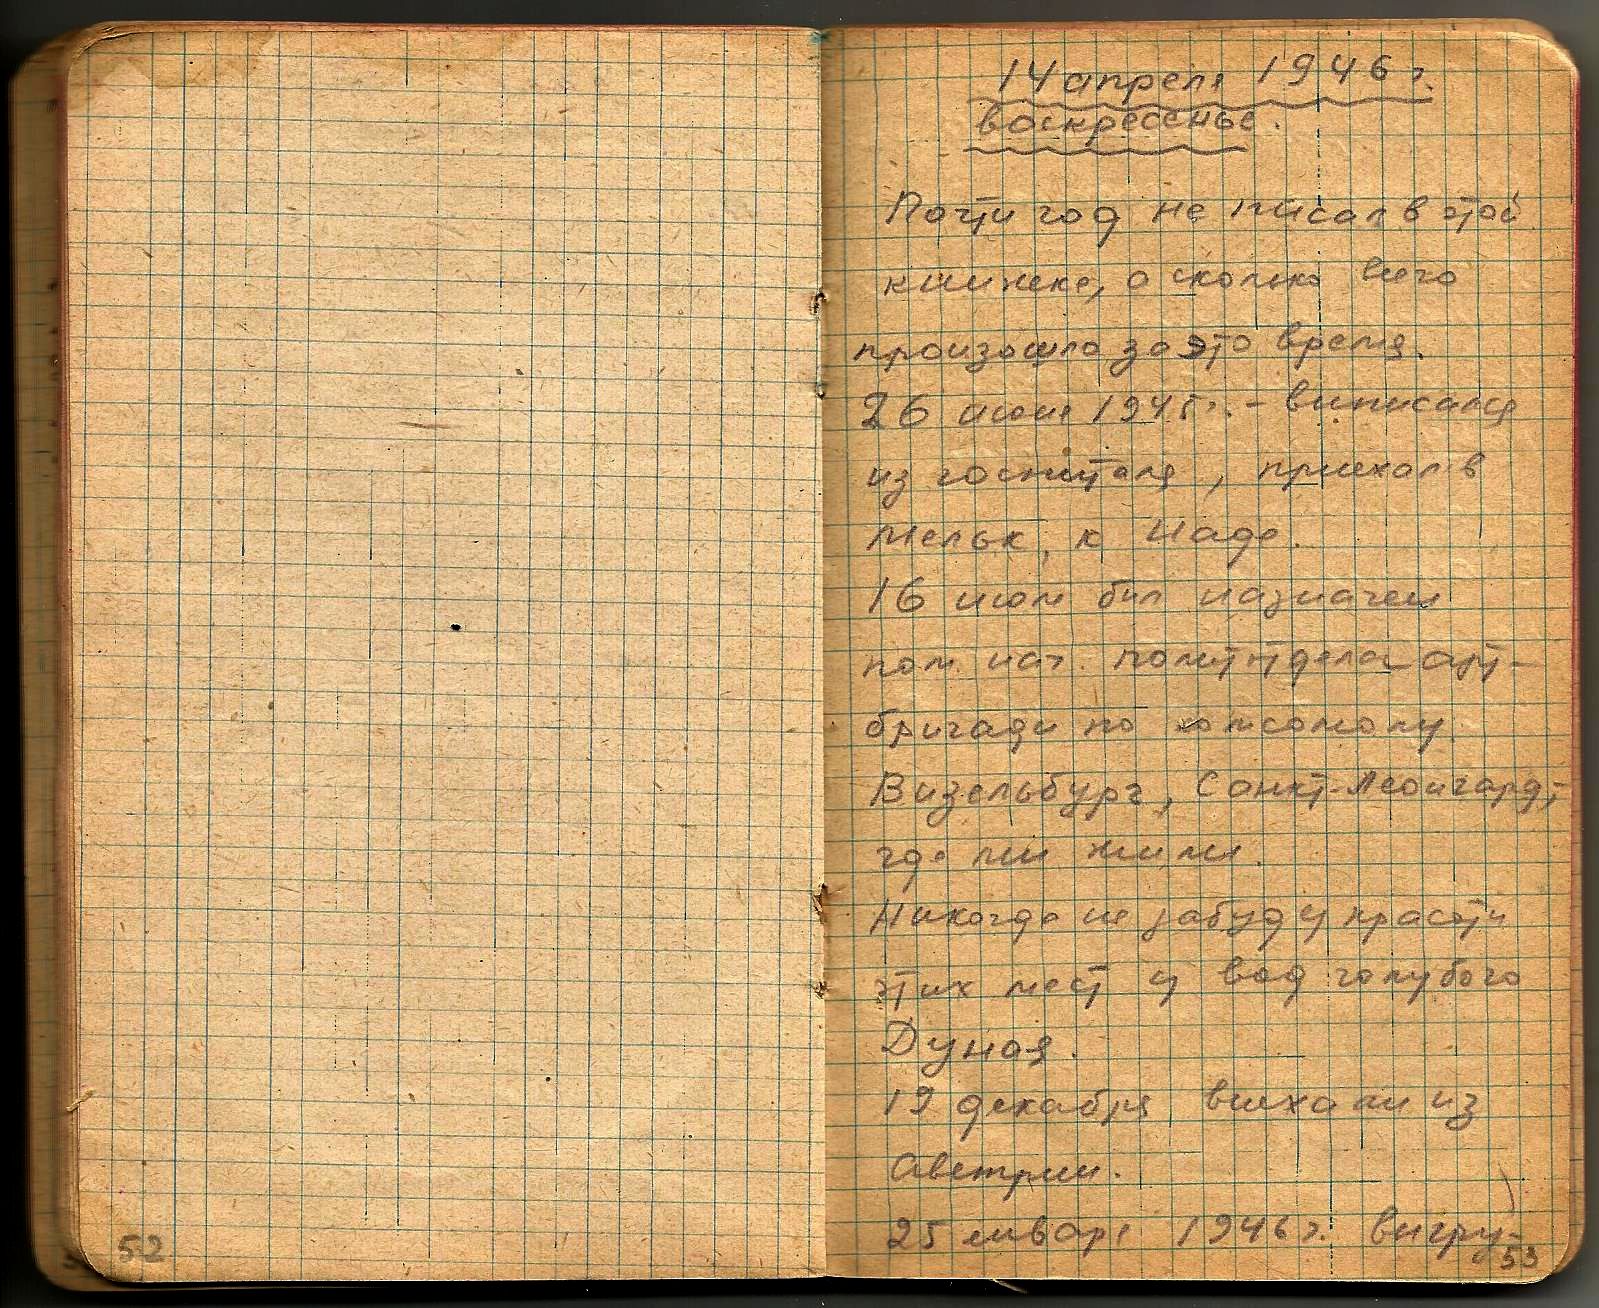 14 апреля 1946 г.
воскресенье.
Почти год не писал в этой
книжке, а сколько всего
произошло за это время.
26 июня 1945 г. – выписался
из госпиталя, приехал в
Мельк, к Наде.
16 июля был назначен
пом. нач. политотдела арт-
бригады по комсомолу.
Визельбург, Санкт-Леонгард,
где мы жили.
Никогда не забуду красоты
этих мест у вод голубого
Дуная.
19 декабря выехали из
Австрии.
25 января 1946 г. выгру-
52
53